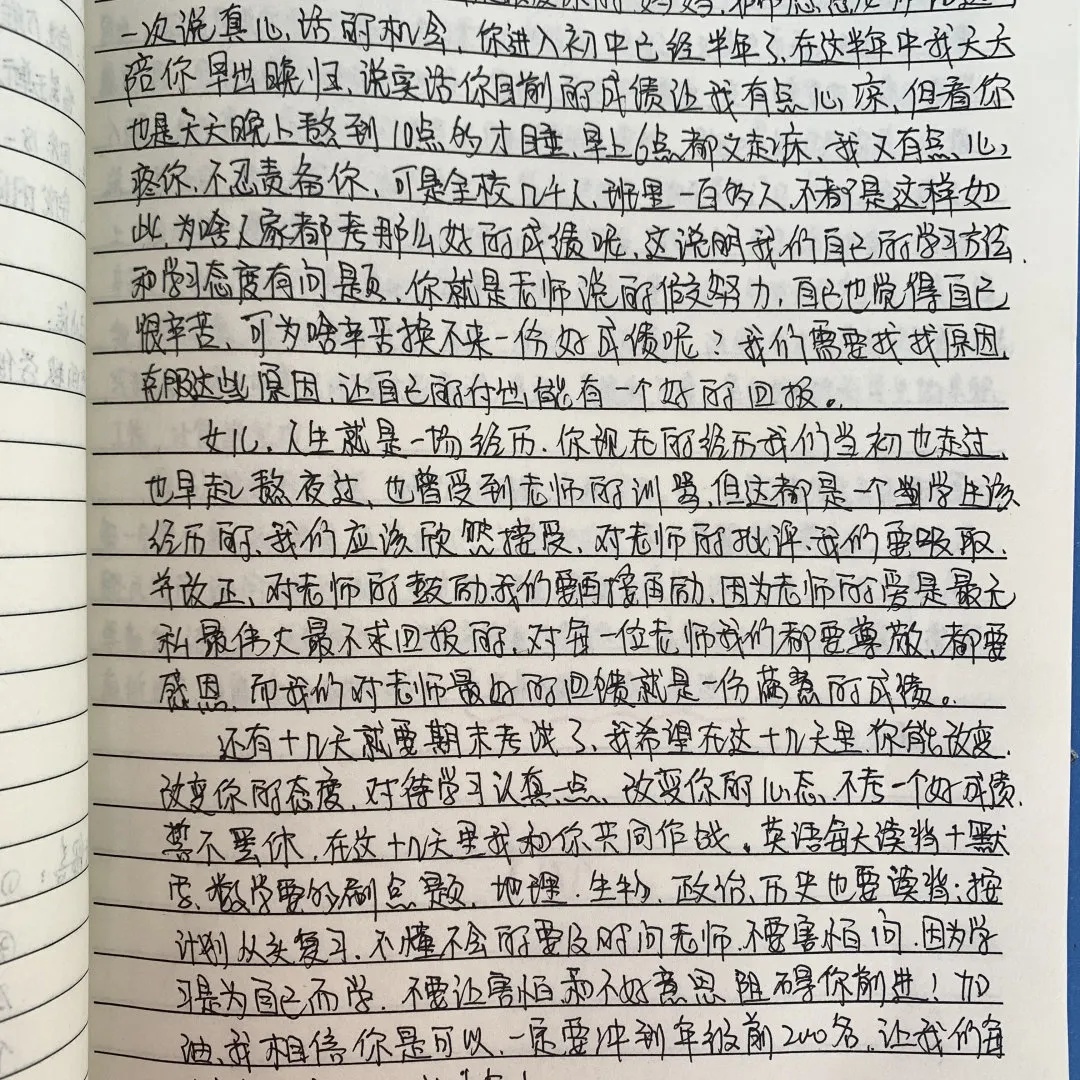 一次说真心话的机会，你进入初中已经半年了，在这半年中我天天
陪你早出晚归，说实话你目前的成绩让我有点心凉，但看你
也是天天晚上熬到10点的才睡，早上6点都又起床，我又有点心
疼你，不忍责备你，可是全校几千人，班里一百多人，不都是这样如
此，为啥人家都考那么好的成绩呢，这说明我们自己的学习方法
和学习态度有问题，你就是老师说的假努力，自己也觉得自己
很辛苦，可为啥辛苦换不来一份好成绩呢？我们需要找找原因，
克服这些原因，让自己的付出能有一个好的回报。
女儿，人生就是一场经历，你现在的经历我们当初也走过，
也早起熬夜过，也曾受到老师的训骂，但这都是一个当学生该
经历的，我们应该欣然接受，对老师的批评，我们要吸取，
并改正，对老师的鼓励我们要再接再励，因为老师的爱是最无
私最伟大最不求回报的，对每一位老师我们都要尊敬，都要
感恩，而我们对老师最好的回馈就是一份满意的成绩。
还有十几天就要期末考试了，我希望在这十几天里你能改变，
改变你的态度，对待学习认真一点，改变你的心态，不考一个好成绩，
誓不罢休，在这十几天里我和你共同作战。英语每天读背十默
写，数学要多刷点题，地理·生物，政治，历史也要读背；按
计划从头复习，不懂不会的要及时问老师，不要害怕问，因为学
习是为自己而学，不要让害怕和不好意思阻碍你前进！加
油，我相信你是可以，一定要冲到年级前200名，让我们每